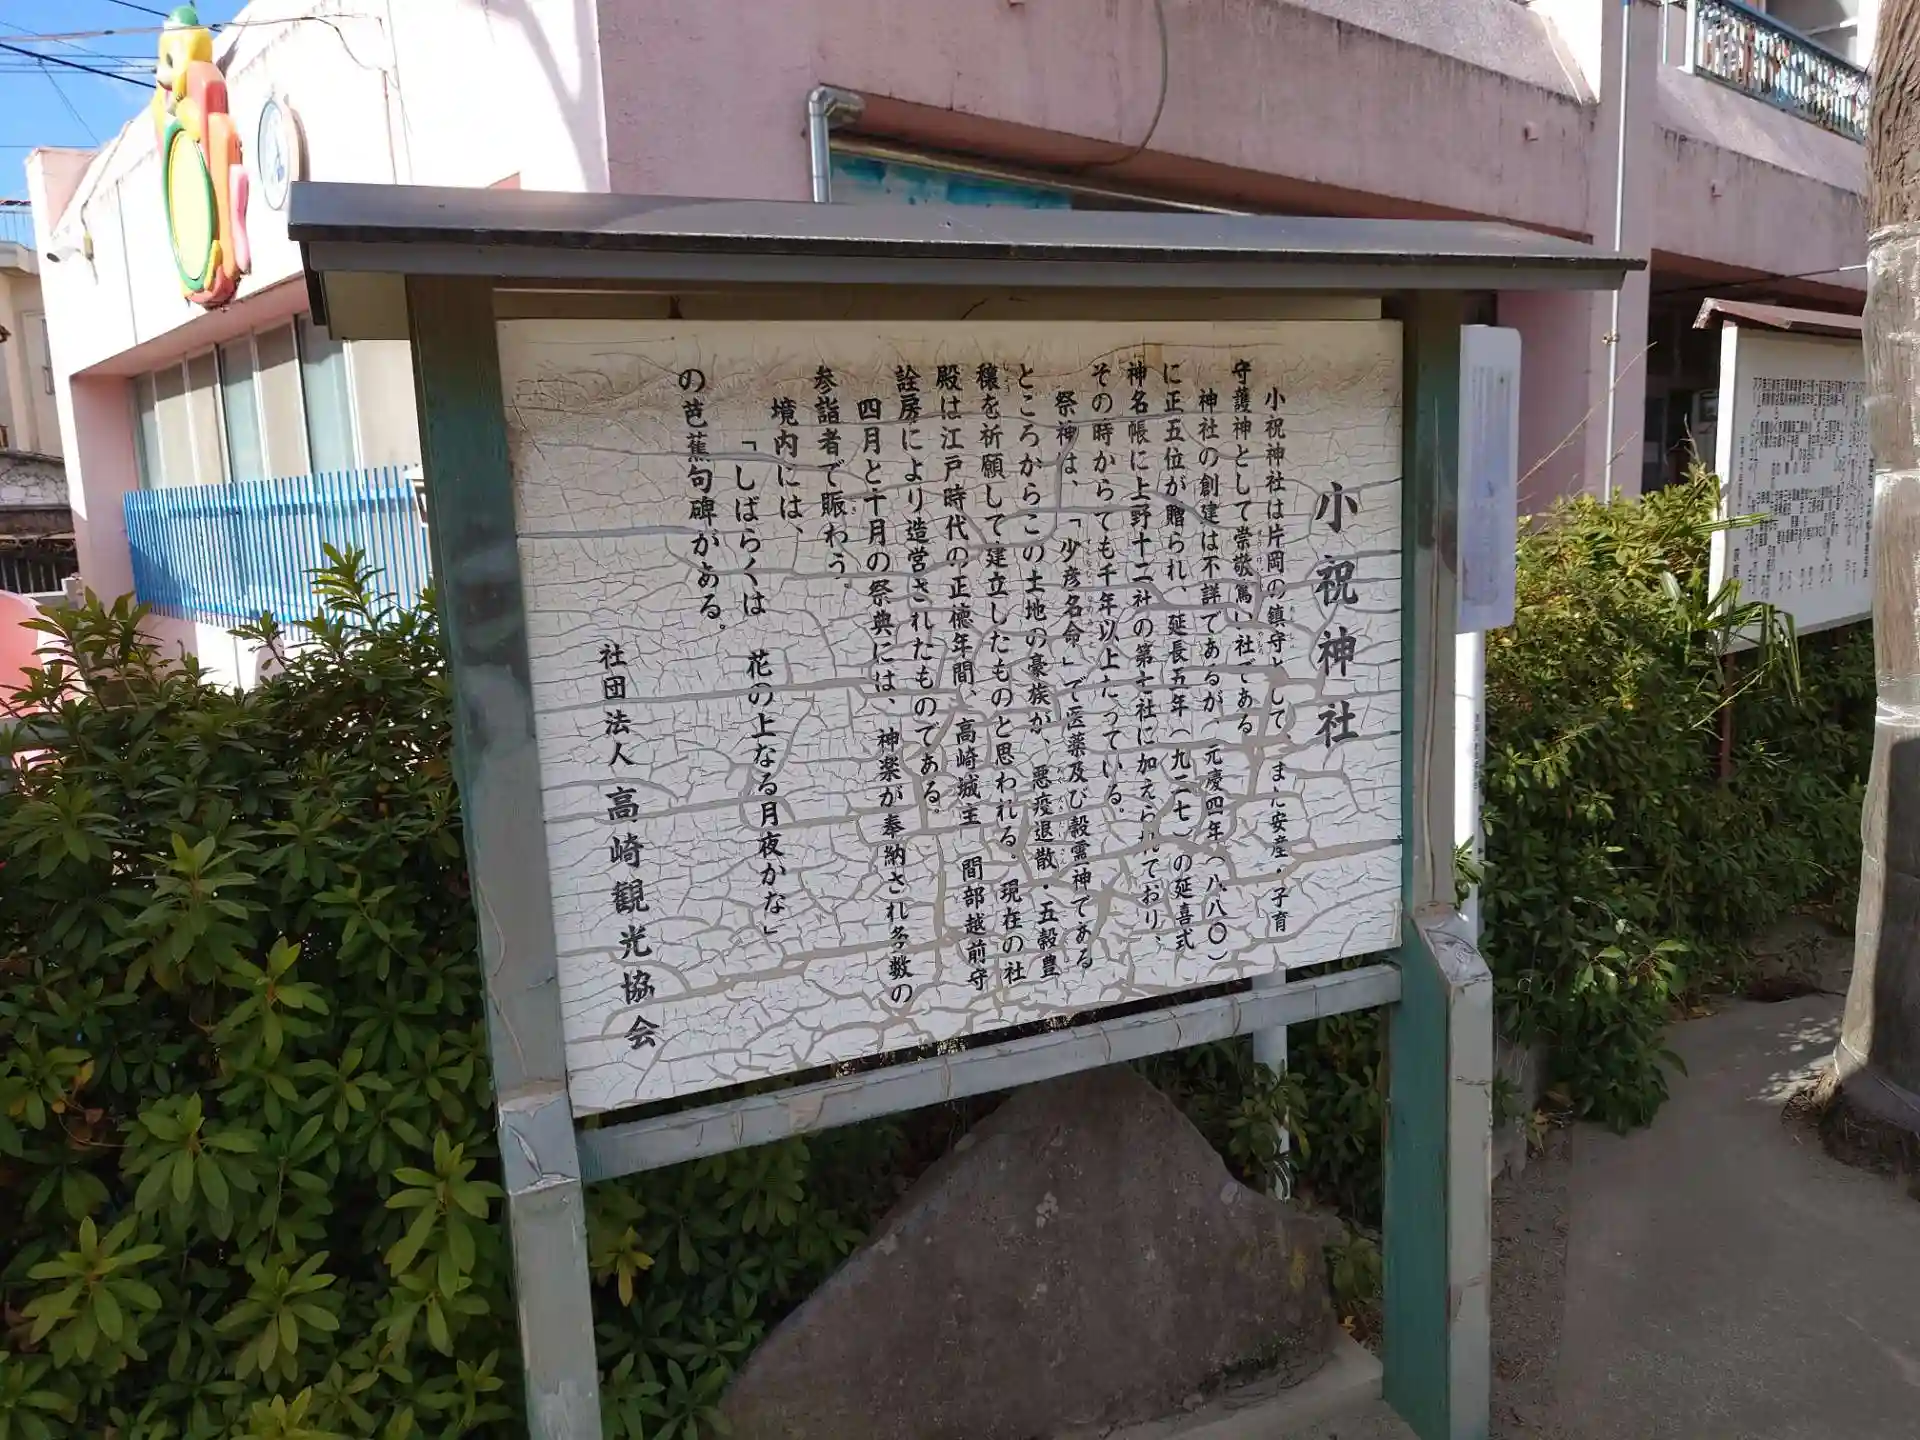 小祝神社
小祝神社は片岡の鎮守として、また安産・子育
守護神として崇敬篤い社である
神社の創建は不詳であるが、元慶四年（八八〇）
に正五位が贈られ、延長五年（九二七）の延喜式
神名帳に上野十二社の第七社に加えられており、
その時からでも千年以上たっている。
祭神は、「少彦名命」で医薬及び穀霊神である
ところからこの土地の豪族が、悪疫退散・五穀豊
穣を祈願して建立したものと思われる。現在の社
殿は江戸時代の正徳年間、高崎城主 間部越前守
詮房により造営されたものである。
四月と十月の祭典には、神楽が奉納され多数の
参詣者で賑わう。
境内には、
「しばらくは 花の上なる月夜かな」
の芭蕉句碑がある。
社団法人高崎観光協会